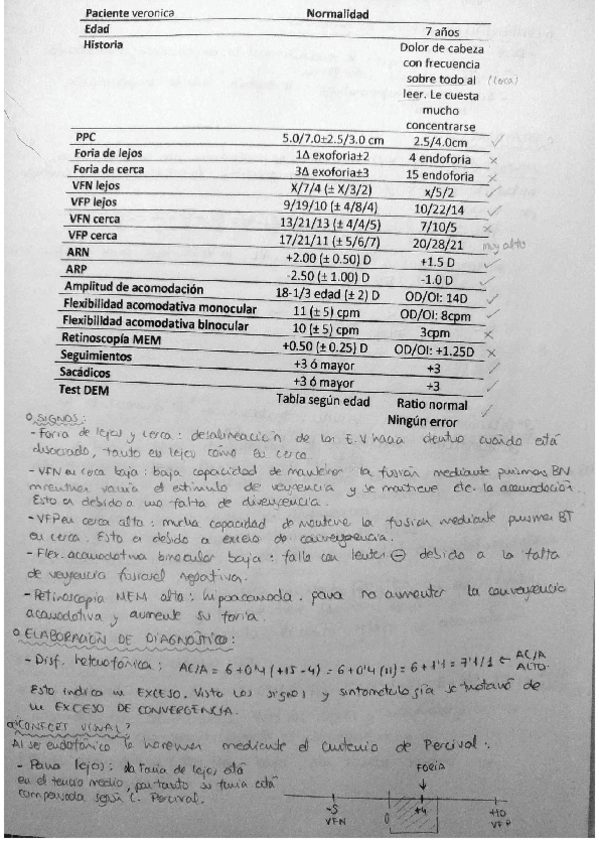 Paciente veronica Normalidad
Edad 7 años
Historia Dolor de cabeza
con frecuencia
sobre todo al (cerca)
leer. Le cuesta
mucho
concentrarse
PPC 5.0/7.0±2.5/3.0 cm 2.5/4.0cm ✓
Foria de lejos 1Δ exoforia±2 4 endoforia ×
Foria de cerca 3Δ exoforia±3 15 endoforia ×
VFN lejos X/7/4 (± X/3/2) x/5/2 ✓
VFP lejos 9/19/10 (± 4/8/4) 10/22/14 ✓
VFN cerca 13/21/13 (± 4/4/5) 7/10/5 ×
VFP cerca 17/21/11 (± 5/6/7) 20/28/21 muy alto
ARN +2.00 (± 0.50) D +1.5 D ✓
ARP -2.50 (± 1.00) D -1.0 D ✓
Amplitud de acomodación 18-1/3 edad (± 2) D OD/OI: 14D ✓
Flexibilidad acomodativa monocular 11 (± 5) cpm OD/OI: 8cpm ✓
Flexibilidad acomodativa binocular 10 (± 5) cpm 3cpm ×
Retinoscopía MEM +0.50 (± 0.25) D OD/OI: +1.25D ×
Seguimientos +3 ó mayor +3 ✓
Sacádicos +3 ó mayor +3 ✓
Test DEM Tabla según edad Ratio normal ✓
Ningún error
SIGNOS:
- Foria de lejos y cerca: desalineación de los E.V hacia dentro cuando está
disociado, tanto en lejos como en cerca.
- VFN en cerca baja: baja capacidad de mantener la fusión mediante prismas BN
mientras varía el estímulo de vergencia y se mantiene cte. la acomodación.
Esto es debido a una falta de divergencia.
- VFP en cerca alta: mucha capacidad de mantener la fusión mediante prismas BT
en cerca. Esto es debido a exceso de convergencia.
- Flex. acomodativa binocular baja: falla con lentes ⊖ debido a la falta
de vergencia fusional negativa.
- Retinoscopía MEM alta: hipoacomoda para no aumentar la convergencia
acomodativa y aumente su foria.
ELABORACIÓN DE DIAGNÓSTICO:
- Disf. heterofórica: AC/A = 6+0'4 (+15-4) = 6+0'4 (11) = 6+1'1 = 7'1/1 ← AC/A
ALTO.
Esto indica un EXCESO. Visto los signos y sintomatología se trataría de
un EXCESO DE CONVERGENCIA.
¿CONFORT VISUAL?
Al ser endofórico lo haremos mediante el criterio de Percival:
- Para lejos: la foria de lejos está
en el tercio medio, por tanto su foria está
compensada según C. Percival.
FORIA
-5 0 +4 +10
VFN VFP